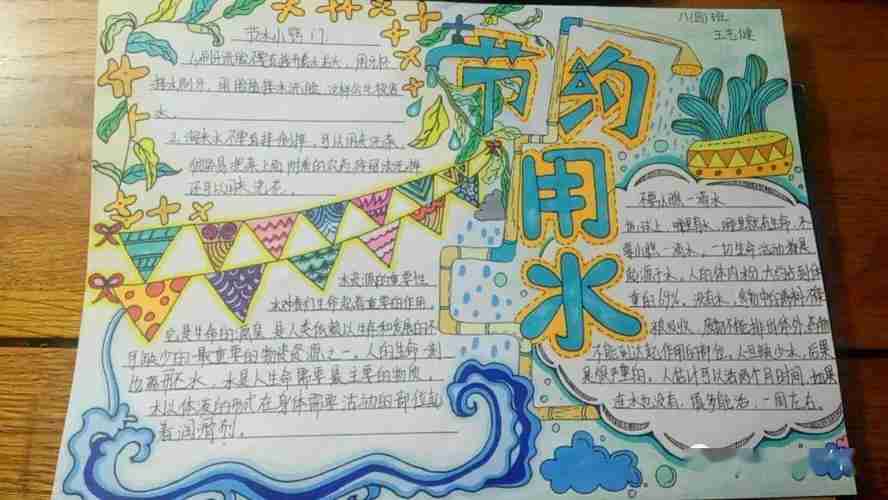 八(四)班
节约用水
节水小窍门
1.刷牙洗脸不要直接开着水龙头,用牙杯
接水刷牙,用脸盆接水洗脸,这样会节约省
水。
2.淘米水不要直接倒掉,可以用来洗菜,
很容易把菜上面附着的农药残留清洗掉
还可以用来洗衣。
水资源的重要性
水对我们生命起着重要的作用,
它是生命的源泉,是人类依赖以生存和发展的不
可缺少的最重要的物质资源之一。人的生命一刻
也离不开水,水是人生命需要最主要的物质,
水以体液的形式在身体需要活动的部位起
着润滑剂。
不要小瞧一滴水
地球上,哪里有水,哪里就有生命,不
要小瞧一滴水。一切生命活动都是
起源于水。人的体内水份大约占到体
重的69%。没有水,食物中的养料不能
被吸收,废物不能排出体外,药物
不能到达起作用的部位。人旦缺少水,后果
是很严重的。人估计可以活两个月时间,如果
在水也没有,俄多能活一周左右。